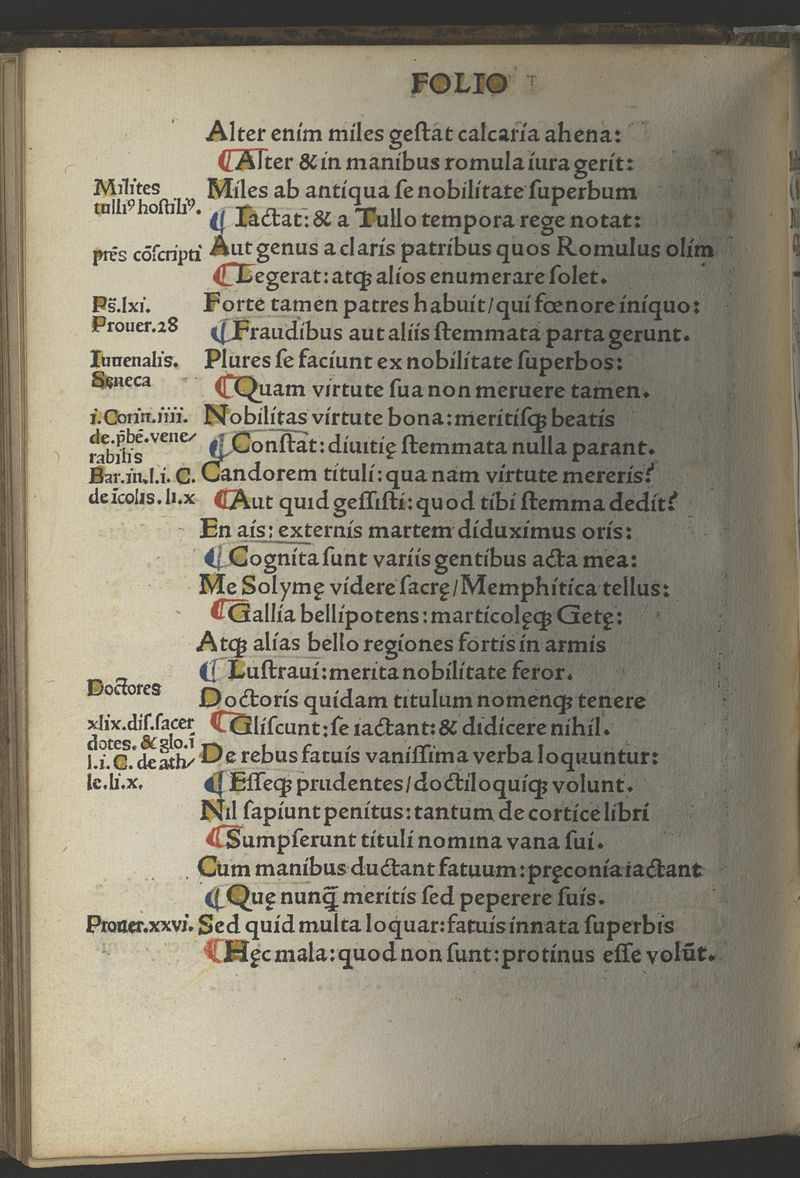 FOLIO
Alter enim miles geſtat calcaria ahena:
¶Alter & in manibus romula iura gerit:
Milites
Miles ab antiqua ſe nobilitate ſuperbum
tulliꝰ hoſtiliꝰ.
¶ Iactat: & a Tullo tempora rege notat:
pr̄es cōſcripti
Aut genus a claris patribus quos Romulus olim
¶Legerat: atqꝫ alios enumerare ſolet.
Ps̄.lxi.
Forte tamen patres habuit/qui fœnore iniquo:
Prouer.28
¶Fraudibus aut aliis ſtemmata parta gerunt.
Iuuenalis.
Plures ſe faciunt ex nobilitate ſuperbos:
Seneca
¶Quam virtute ſua non meruere tamen.
i.Corin.iiii.
Nobilitas virtute bona: meritiſqꝫ beatis
de.p̄bē.vene/
¶Conſtat: diuitię ſtemmata nulla parant.
rabilis
Bar.in.l.i. C.
Candorem tituli: qua nam virtute mereris?
de īcolis.li.x
¶Aut quid geſſiſti: quod tibi ſtemma dedit?
En ais: externis martem diduximus oris:
¶Cognita ſunt variis gentibus acta mea:
Me Solymę videre ſacrę/Memphitica tellus:
¶Gallia bellipotens: marticolęqꝫ Getę:
Atqꝫ alias bello regiones fortis in armis
¶ Luſtraui: merita nobilitate feror.
Doctores
Doctoris quidam titulum nomenqꝫ tenere
xlix.diſ.ſacer
¶Gliſcunt: ſe iactant: & didicere nihil.
dotes. & glo.ī
l.i. C. de ath/
De rebus fatuis vaniſſima verba loquuntur:
le.li.x.
¶Eſſeqꝫ prudentes/doctiloquiqꝫ volunt.
Nil ſapiunt penitus: tantum de cortice libri
¶Sumpſerunt tituli nomina vana ſui.
Cum manibus ductant fatuum: pręconia iactant
¶Quę nunq̄ meritis ſed peperere ſuis.
Prouer.xxvi.
Sed quid multa loquar: fatuis innata ſuperbis
¶Hęc mala: quod non ſunt: protinus eſſe volūt.